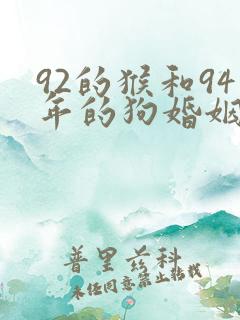 92的猴和94
年的狗婚姻
普里兹科
未经同意禁止转载